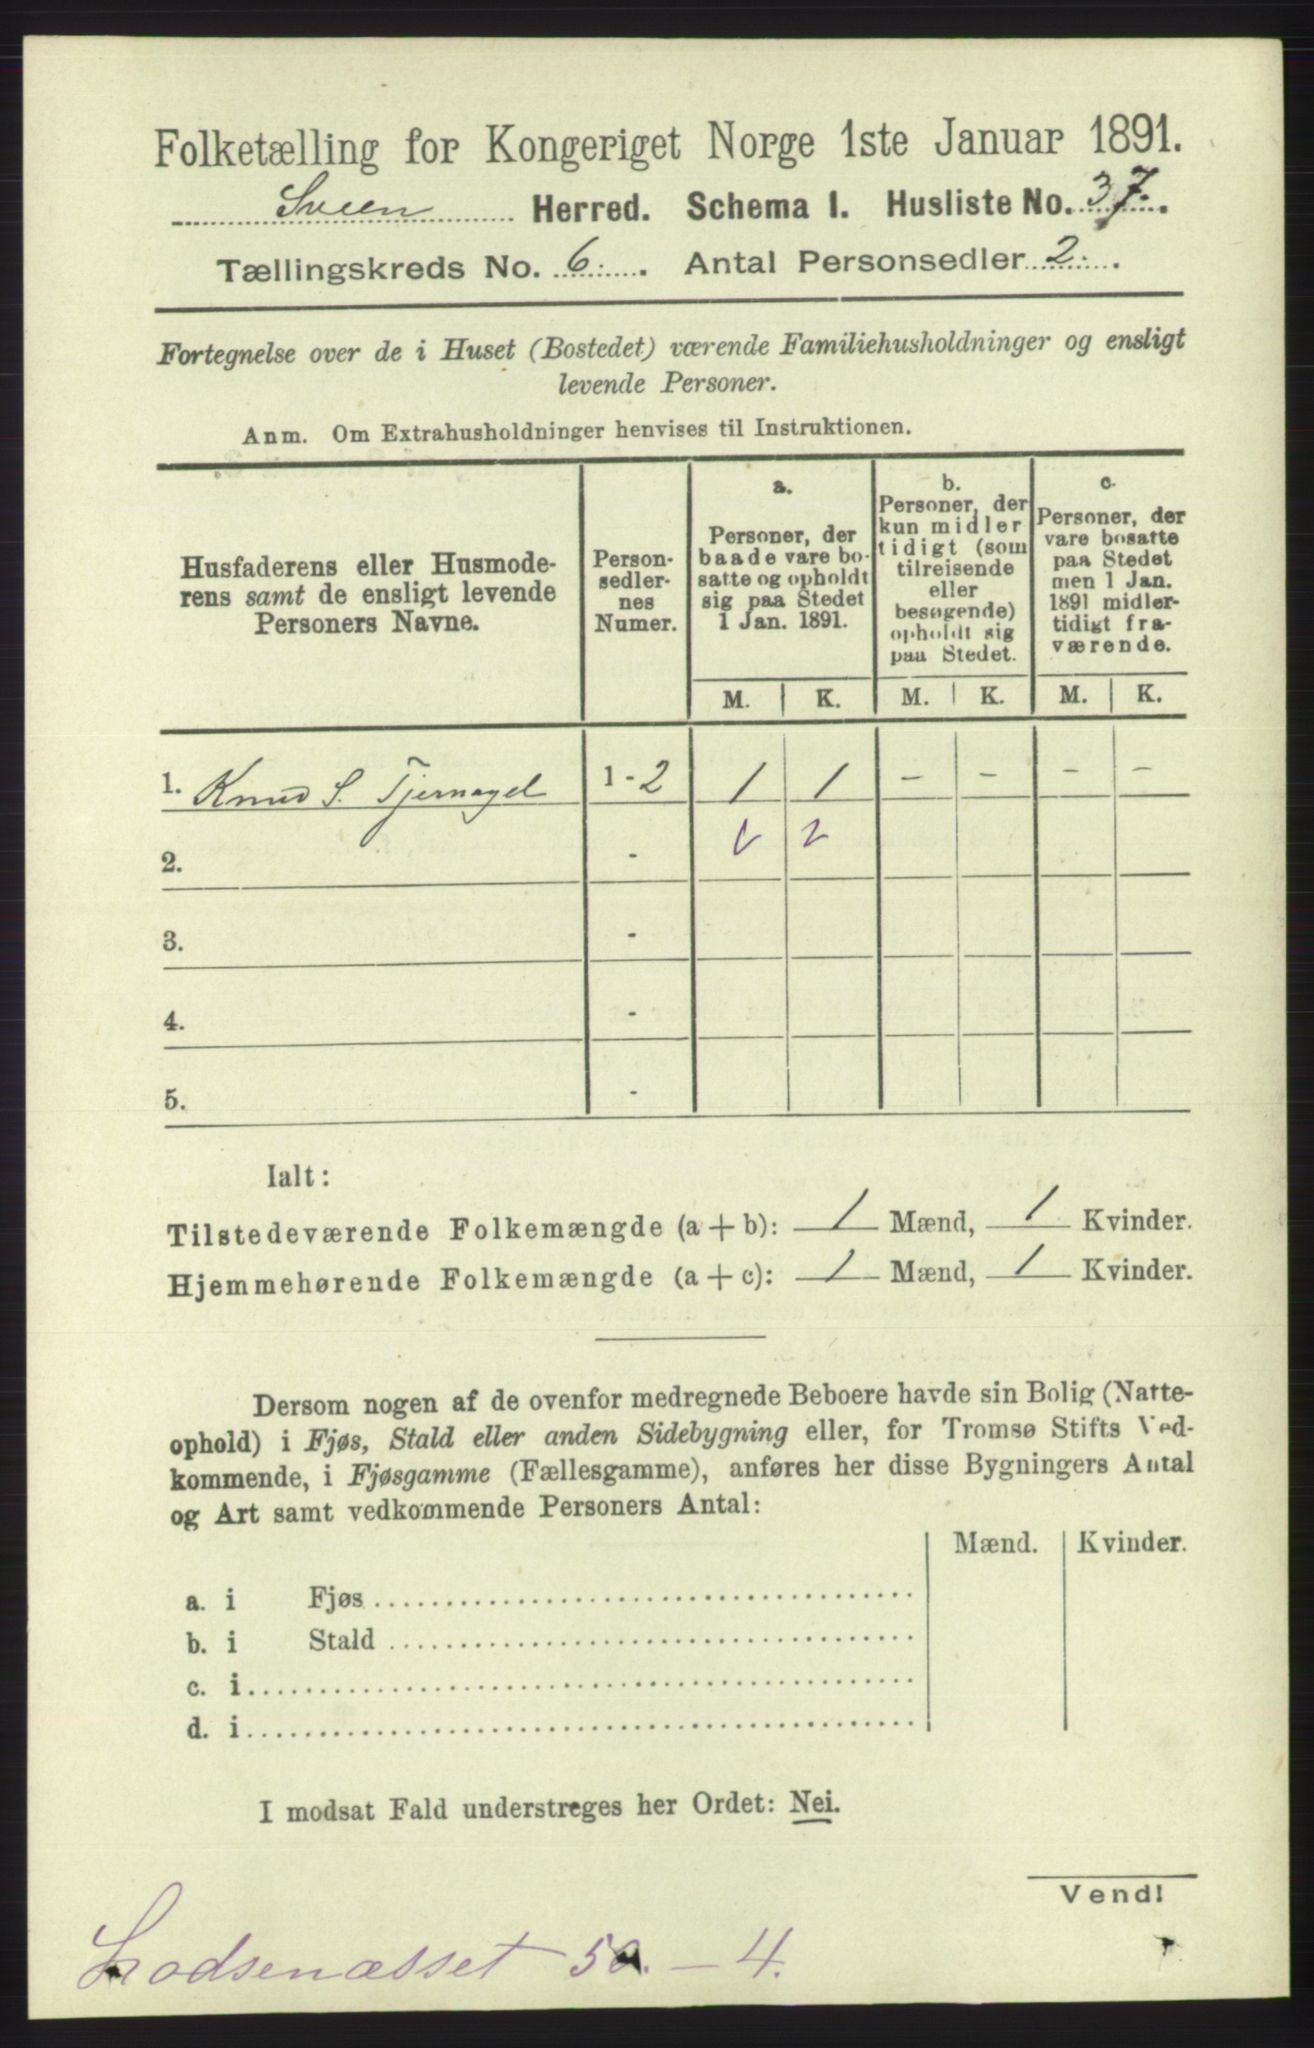 Folketælling for Kongeriget Norge 1ste Januar 1891.
Sveen Herred. Schema 1. Husliste No. 37.
Tællingskreds No. 6. Antal Personsedler 2.
Fortegnelse over de i Huset (Bostedet) værende Familiehusholdninger og ensligt
levende Personer.
Anm. Om Extrahusholdninger henvises til Instruktionen.
Husfaderens eller Husmode-
rens samt de ensligt levende
Personers Navne.
Person-
sedler-
nes
Numer.
a.
Personer, der
baade vare bo-
satte og opholdt
sig paa Stedet
1 Jan. 1891.
b.
Personer, der
kun midler
tidigt (som
tilreisende
eller
besøgende)
opholdt sig
paa Stedet.
c.
Personer, der
vare bosatte
paa Stedet
men 1 Jan.
1891 midler-
tidigt fra-
værende.
M. K. M. K. M. K.
1. Knud S. Tjernagel 1-2 1 1 - - - -
2. -
3. -
4. -
5. -
Ialt:
Tilstedeværende Folkemængde (a+b): 1 Mænd, 1 Kvinder.
Hjemmehørende Folkemængde (a+c): 1 Mænd, 1 Kvinder.
Dersom nogen af de ovenfor medregnede Beboere havde sin Bolig (Natte-
ophold) i Fjøs, Stald eller anden Sidebygning eller, for Tromsø Stifts Ved-
kommende, i Fjøsgamme (Fællesgamme), anføres her disse Bygningers Antal
og Art samt vedkommende Personers Antal:
Mænd. Kvinder.
a. i Fjøs
b. i Stald
c. i
d. i
I modsat Fald understreges her Ordet: Nei.
Vend!
Lodsenæsset 50. - 4.